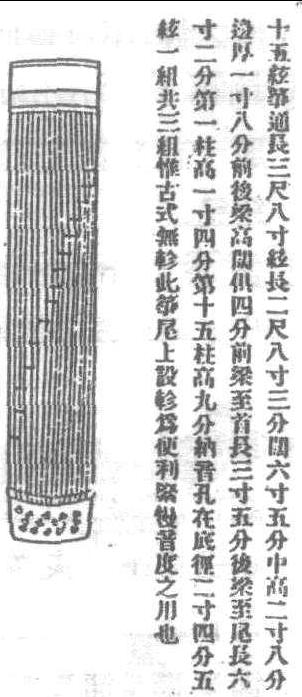 十五絃箏通長三尺八寸絃長二尺八寸三分闊六寸五分中高二寸八分
邊厚一寸八分前後梁高闊俱四分前梁至首長三寸五分後梁至尾長六
寸二分第一柱高一寸四分第十五柱高九分納音孔在底徑二寸四分五
絃一組共三組惟古式無軫此箏尾上設軫爲便利緊慢音度之用也